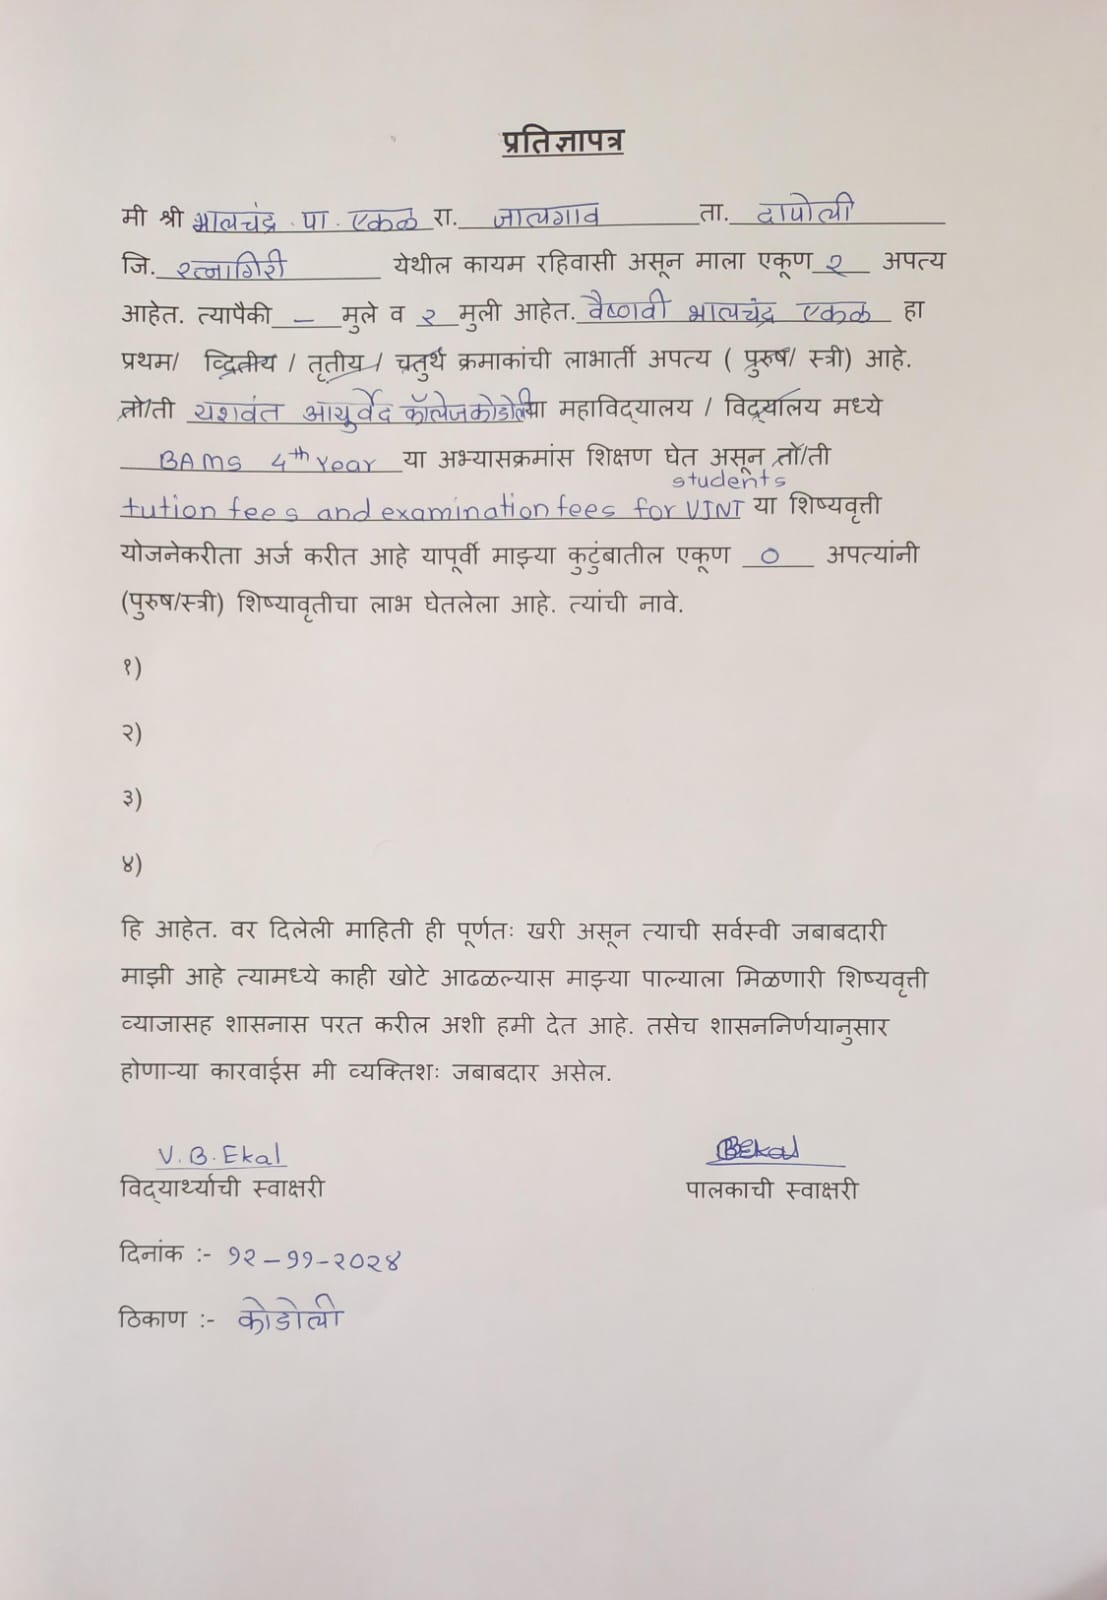 प्रतिज्ञापत्र
मी श्री भालचंद्र . पा . एकळ रा. जालगाव ता. दापोली
जि. रत्नागिरी येथील कायम रहिवासी असून माला एकूण २ अपत्य
आहेत. त्यापैकी – मुले व २ मुली आहेत. वैष्णवी भालचंद्र एकळ हा
प्रथम/ व्दितीय / तृतीय / चतुर्थ क्रमाकांची लाभार्ती अपत्य ( पुरुष/ स्त्री) आहे.
तो/ती यशवंत आयुर्वेद कॉलेज कोडोली या महाविद्यालय / विद्यालय मध्ये
BAMS 4th Year या अभ्यासक्रमांस शिक्षण घेत असून तो/ती
students
tution fees and examination fees for VJNT या शिष्यवृत्ती
योजनेकरीता अर्ज करीत आहे यापूर्वी माझ्या कुटुंबातील एकूण ० अपत्यांनी
(पुरुष/स्त्री) शिष्यावृतीचा लाभ घेतलेला आहे. त्यांची नावे.
१)
२)
३)
४)
हि आहेत. वर दिलेली माहिती ही पूर्णतः खरी असून त्याची सर्वस्वी जबाबदारी
माझी आहे त्यामध्ये काही खोटे आढळल्यास माझ्या पाल्याला मिळणारी शिष्यवृत्ती
व्याजासह शासनास परत करील अशी हमी देत आहे. तसेच शासननिर्णयानुसार
होणाऱ्या कारवाईस मी व्यक्तिशः जबाबदार असेल.
V. B. Ekal BBEkal
विद्यार्थ्याची स्वाक्षरी पालकाची स्वाक्षरी
दिनांक :- १२-११-२०२४
ठिकाण :- कोडोली